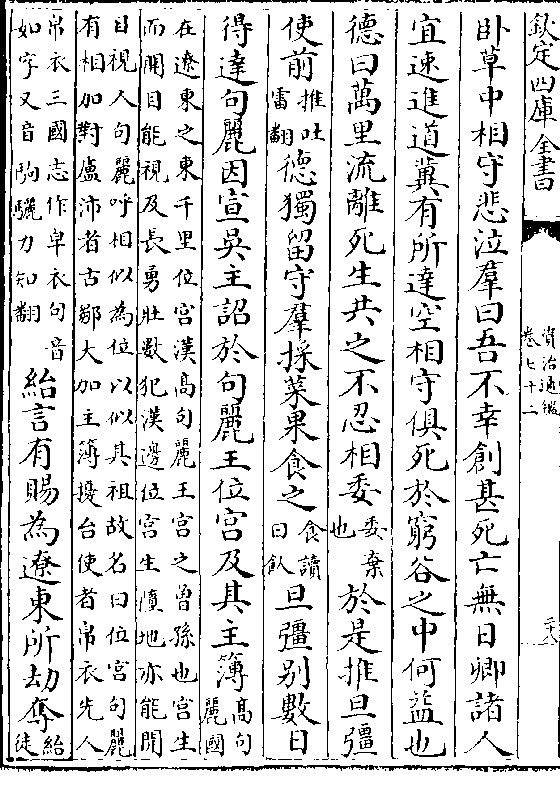 欽定四庫全書
資治通鑑
卷七十二
臥草中相守悲泣羣曰吾不幸創甚死亡無日卿諸人
宜速進道冀有所達空相守俱死於窮谷之中何益也
德曰萬里流離死生共之不忍相委委棄也於是推旦彊
使前推吐雷翻德獨留守羣採菜果食之食讀曰飤旦彊別數日
得達句麗因宣吳主詔於句麗王位宮及其主簿高句麗國
在遼東之東千里位宮漢高句麗王宮之曾孫也宮生
而開目能視及長勇壯數犯漢邊位宮生墮地亦能開
目視人句麗呼相似為位以似其祖故名曰位宮句麗
有相加對盧沛者古鄒大加主簿擾台使者帛衣先人
帛衣三國志作皁衣句音
如字又音駒驪力知翻
紿言有賜為遼東所劫奪紿徒